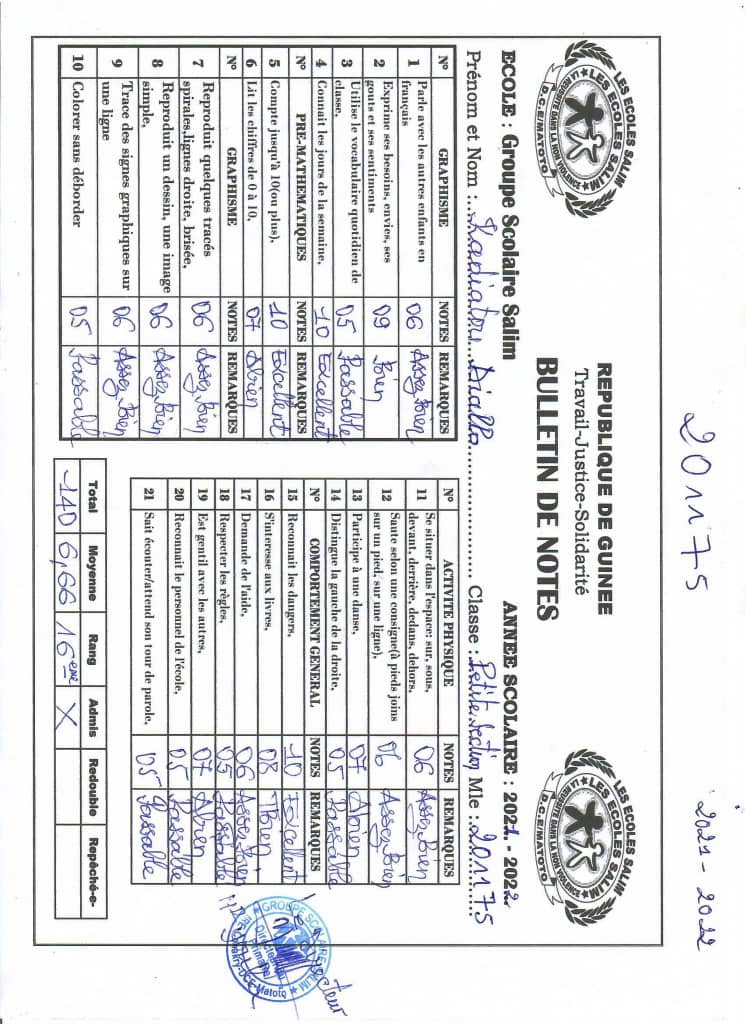 201175
2021-2022
LES ECOLES SALIM
LES ECOLES SALIM
LA REUSSITE DANS LA NON VIOLENCE
D.C.E/MATOTO
REPUBLIQUE DE GUINEE
Travail-Justice-Solidarité
BULLETIN DE NOTES
LES ECOLES SALIM
LES ECOLES SALIM
LA REUSSITE DANS LA NON VIOLENCE
D.C.E/MATOTO
ECOLE : Groupe Scolaire Salim ANNEE SCOLAIRE : 2021 - 2022
Prénom et Nom : Kadiatou Diallo Classe : Petite Section Mle : 201175
N° GRAPHISME NOTES REMARQUES
1 Parle avec les autres enfants en français 06 Assez Bien
2 Exprime ses besoins, envies, ses gouts et ses sentiments 09 Bien
3 Utilise le vocabulaire quotidien de classe. 05 Passable
4 Connait les jours de la semaine. 10 Excellent
N° PRE-MATHEMATIQUES NOTES REMARQUES
5 Compte jusqu'à 10(ou plus). 10 Excellent
6 Lit les chiffres de 0 à 10. 07 Abien
N° GRAPHISME NOTES REMARQUES
7 Reproduit quelques tracés spirales,lignes droite, brisée. 06 Assez Bien
8 Reproduit un dessin, une image simple. 06 Assez Bien
9 Trace des signes graphiques sur une ligne 06 Assez Bien
10 Colorer sans déborder 05 Passable
N° ACTIVITE PHYSIQUE NOTES REMARQUES
11 Se situer dans l'espace: sur, sous, devant, derrière, dedans, dehors. 06 Assez Bien
12 Saute selon une consigne(à pieds joins sur un pied, sur une ligne). 06 Assez Bien
13 Participe à une danse. 07 Abien
14 Distingue la gauche de la droite. 05 Passable
N° COMPORTEMENT GENERAL NOTES REMARQUES
15 Reconnait les dangers. 10 Excellent
16 S'interesse aux livres. 08 Bien
17 Demande de l'aide. 06 Assez Bien
18 Respecter les règles. 05 Passable
19 Est gentil avec les autres. 07 Abien
20 Reconnait le personnel de l'école. 05 Passable
21 Sait écouter/attend son tour de parole. 05 Passable
Total Moyenne Rang Admis Redouble Repêché-e-
140 6,66 16eme X
Directeur
GROUPE SCOLAIRE SALIM
Primaire
DCE Matoto